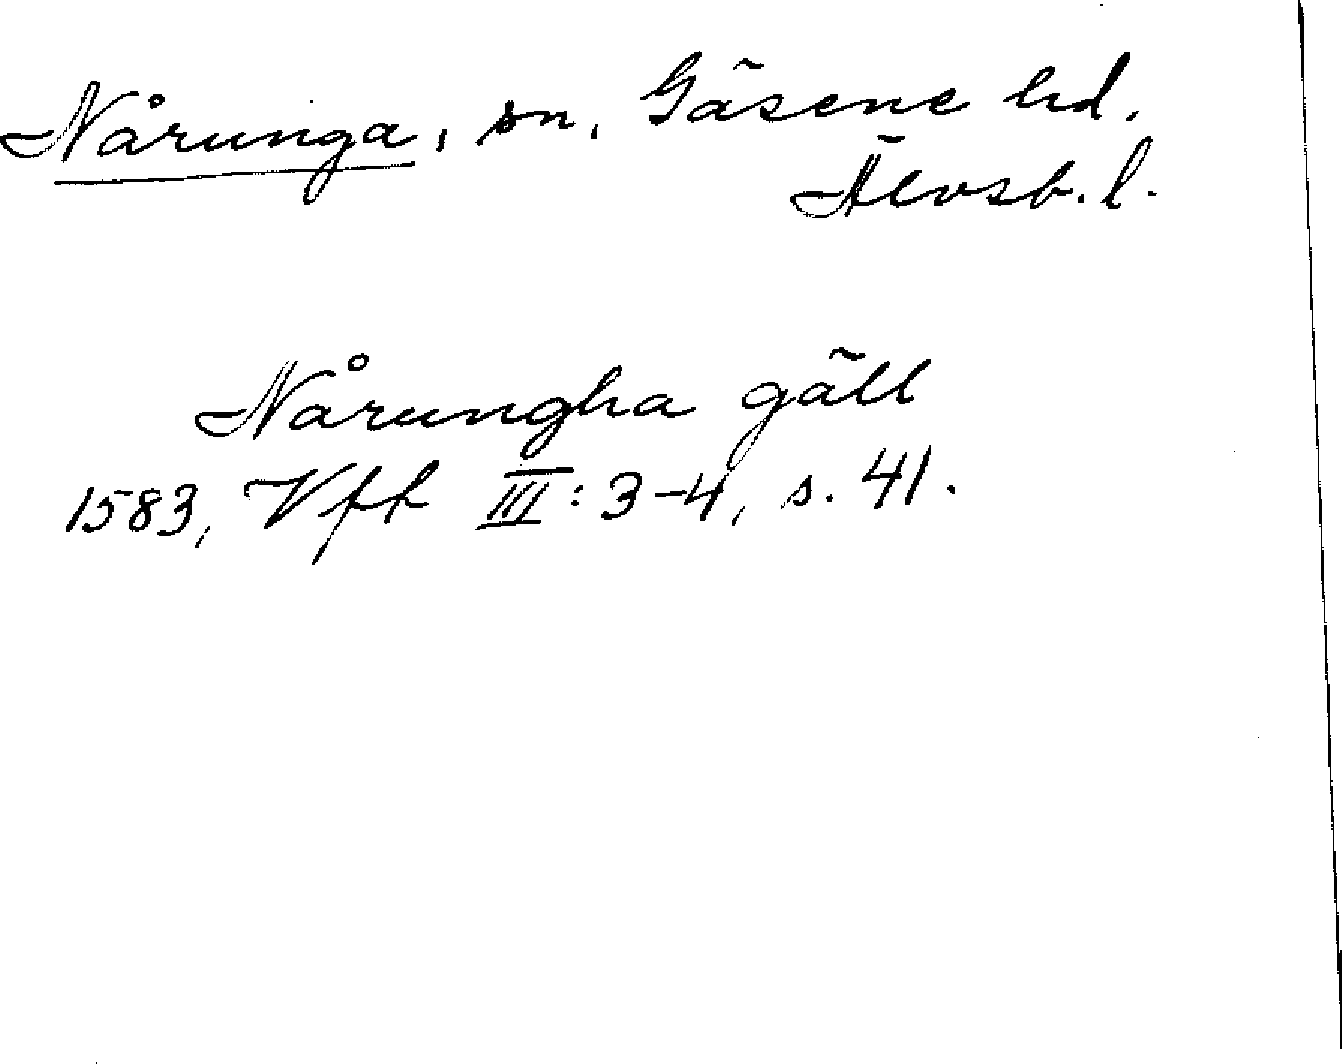 Nårunga, sn, Gäsene hd.
Älvsb. l.
Nårungha gäll
1583, Vff III: 3-4, s. 41.